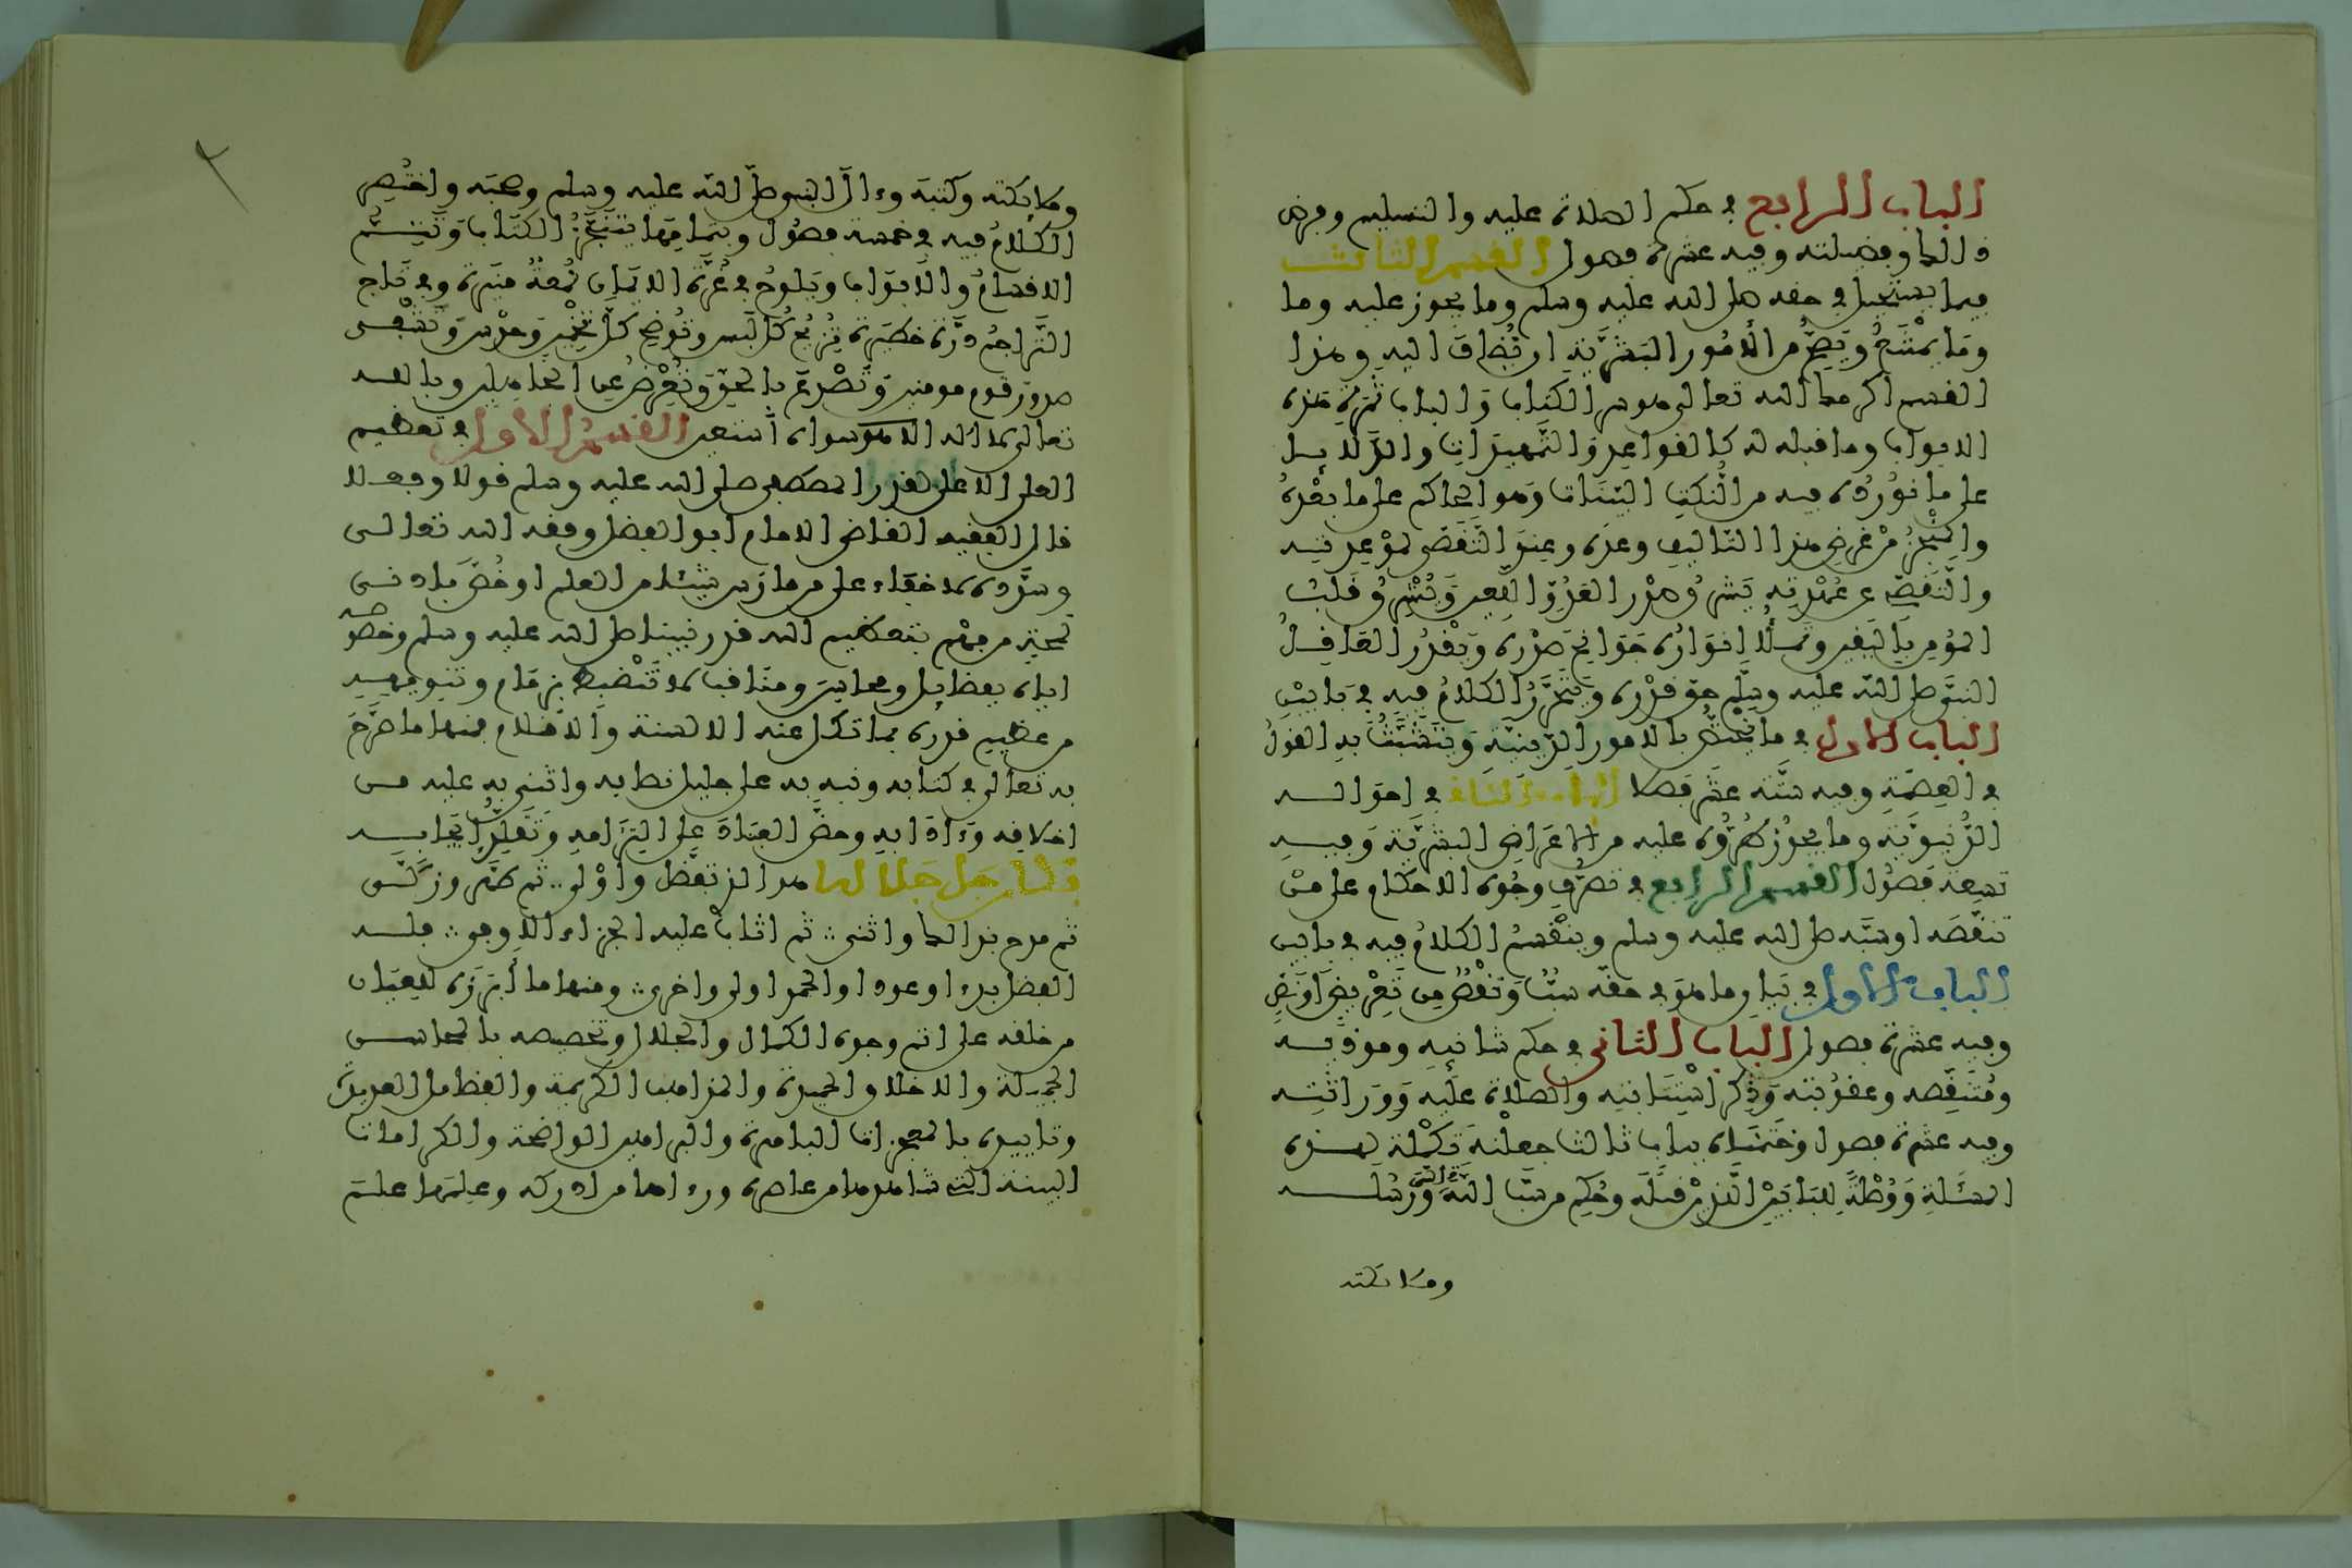 الباب الرابع في حكم الصلاة عليه والتسليم وفرض
ذالك وفضيلته وفيه عشرة فصول القسم الثالث
فيما يستحيل في حقه صلى الله عليه وسلم وما يجوز عليه وما
وما يمتنع ويصح من الأمور البشرية ان تضاف اليه وهذا
القسم اكرمك الله تعالى هو سر الكتاب ولباب ثمرة هذه
الابواب وما قبله له كالقواعد والتمهيدات والدلايل
على ما نورده فيه من النكت البينات وهو الحاكم على ما بعده
والمنجز من غرض هذا التاليف وعده وعند التقضي لموعدته
والتفصي عن عهدته يشرق صدر العدو اللعين ويشرق قلب
المؤمن باليقين وتملأ انواره جوانح صدره ويقدر العاقل
النبي صلى الله عليه وسلم حق قدره ويتحرر الكلام فيه في بابين
الباب الاول في ما يختص بالامور الدينية ويتشبث به القول
في العصمة وفيه ستة عشر فصلا الباب الثاني في احواله
الدنيوية وما يجوز طروه عليه من الاعراض البشرية وفيه
تسعة فصول القسم الرابع في تصرف وجوه الاحكام على من
تنقصه او سبه صلى الله عليه وسلم وينقسم الكلام فيه في بابين
الباب الاول في بيان ما هو في حقه سب ونقص من تعريض او نص
وفيه عشرة فصول الباب الثاني في حكم شانيه وموذيه
ومتنقصه وعقوبته وذكر استتابته والصلاة عليه ووراثته
وفيه عشرة فصول وختمناه بباب ثالث جعلناه تكملة لهذه
المسئلة ووصلة للبابين الذين قبله وحكم من سب الله تعالى ورسله
وملائكته
وملائكته وكتبه وءال النبي صلى الله عليه وسلم وصحبه واختصر
الكلام فيه في خمسة فصول وبتمامها ينتجز الكتاب وتتم
الاقسام والابواب ويلوح في غرة الايمان لمعة منيرة وفي تاج
التراجم درة خطيرة تزيح كل لبس وتوضح كل تخمين وحدس وتشفي
صدور قوم مومنين وتصدع بالحق وتعرض عن الجاهلين وبالله
تعالى لا اله الا هو سواه أستعين القسم الاول في تعظيم
العلي الاعلى لقدر المصطفى صلى الله عليه وسلم قولا وفعلا
قال الفقيه القاضي الامام ابو الفضل وفقه الله تعالى
وسدده لا خفاء على من مارس شيئا من العلم او خص بادنى
لمحة من فهم بتعظيم الله قدر نبينا صلى الله عليه وسلم وخصوصه
اياه بفضايل ومحاسن ومناقب لا تنضبط بزمام وتنويهه
من عظيم قدره بما تكل عنه الالسنة والاقلام فمنها ما صرح
به تعالى في كتابه ونبه به على جليل نصابه واثنى به عليه من
اخلاقه وءادابه وحض العباد على التزامه وتقلد ايجابه
فكان جل جلاله هو الذي تفضل واولى ثم طهر وزكى
ثم مدح بذالك واثنى ثم اثاب عليه الجزاء الاوفى فله
الفضل بدءا وعودا والحمد اولى واخرى ومنها ما أبرزه للعيان
من خلقه على اتم وجوه الكمال والجلال وتخصيصه بالمحاسن
الجميلة والاخلاق الحميدة والمذاهب الكريمة والفضايل العديدة
وتاييده بالمعجزات الباهرة والبراهين الواضحة والكرامات
البينة التي شاهدها من عاصره ورءاها من ادركه وعلمها علم